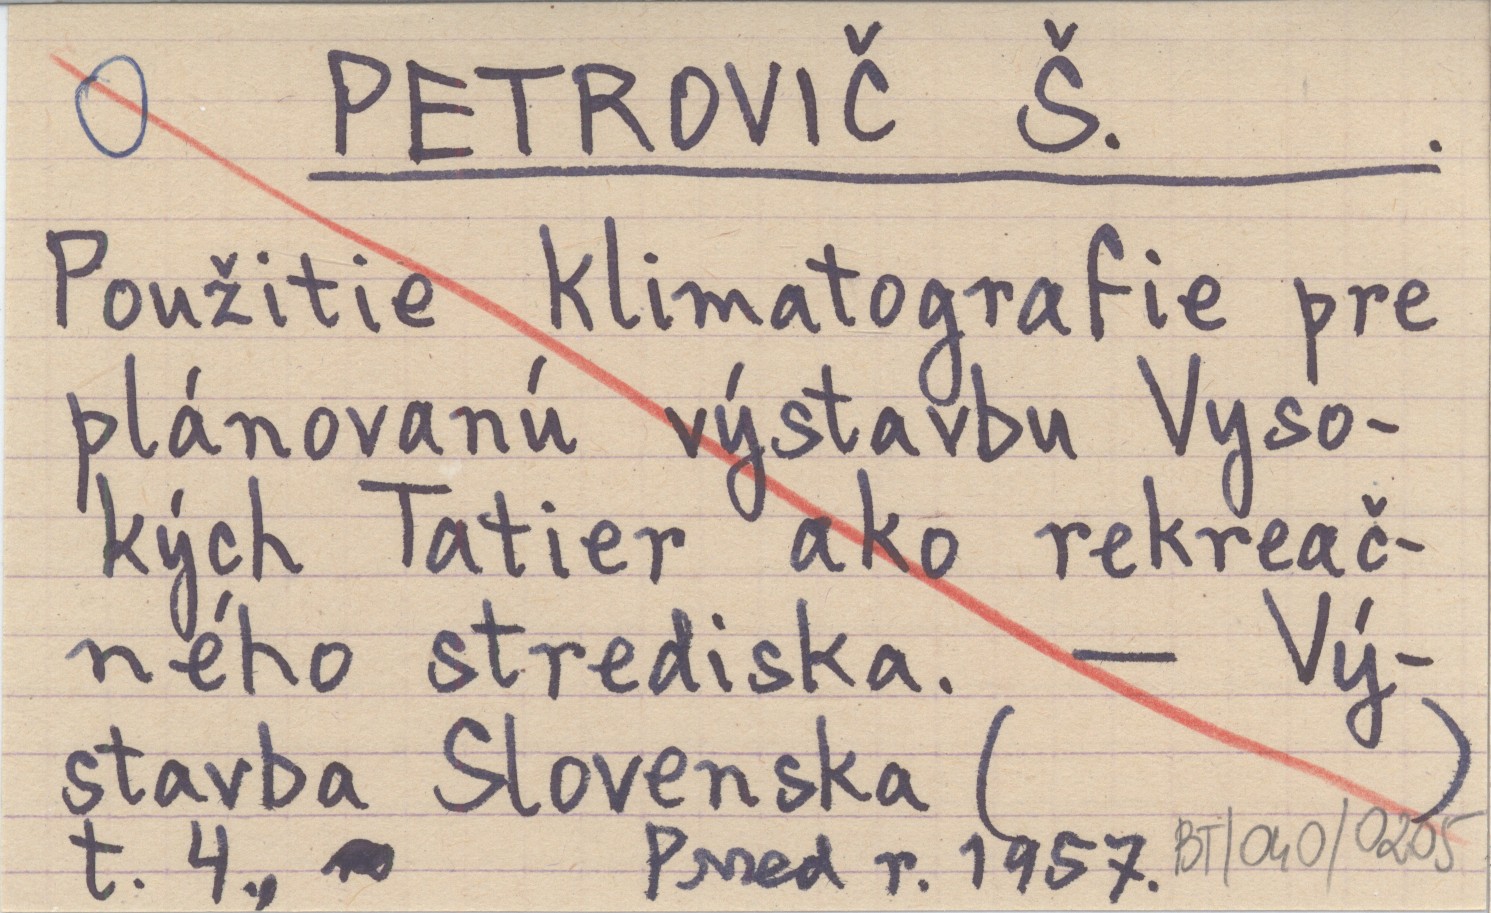 PETROVIČ Š. .
Použitie klimatografie pre
plánovanú výstavbu Vyso-
kých Tatier ako rekreač-
ného strediska. — Vý-
stavba Slovenska ( )
t. 4., r. 1957. BT/040/0205